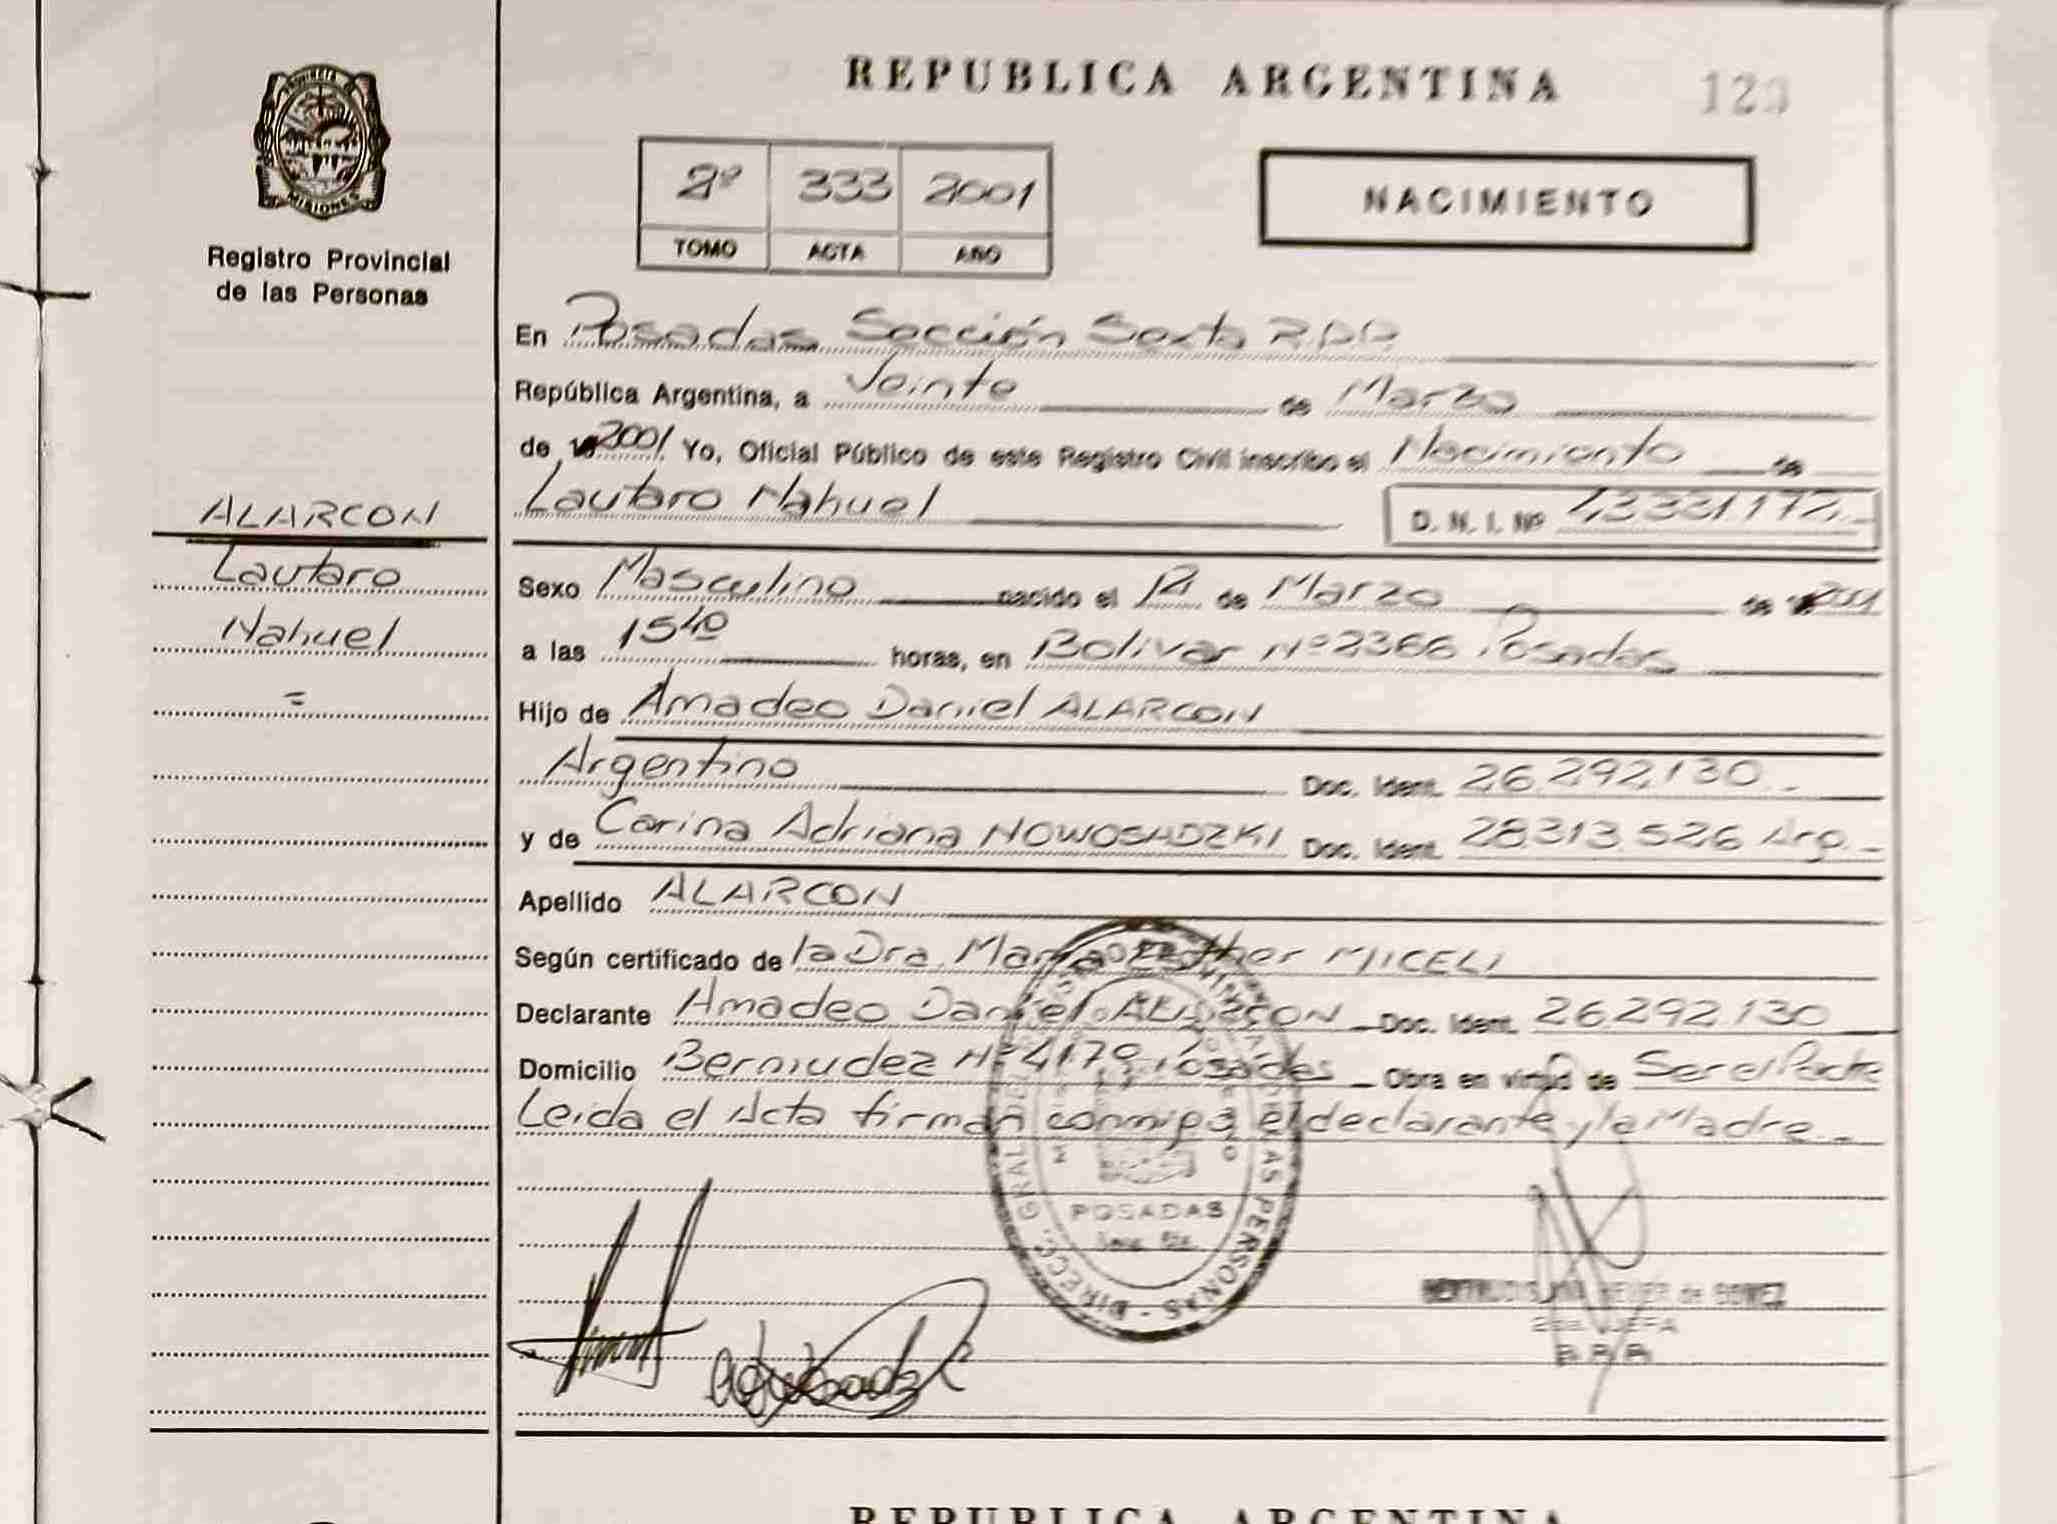 REPUBLICA ARGENTINA
PROVINCIA
MISIONES
Registro Provincial
de las Personas
2º 333 2001
TOMO ACTA AÑO
NACIMIENTO
En Posadas Sección Sexta R.P.P.
República Argentina, a Veinte de Marzo
de 2001 Yo, Oficial Público de este Registro Civil inscribo el Nacimiento de
ALARCON
Lautaro Nahuel D. N. I. Nº
Lautaro
Nahuel
=
Sexo Masculino nacido el de Marzo de 2001
a las 15 40 horas, en Bolivar Nº 2366 Posadas
Hijo de Amadeo Daniel ALARCON
Argentino Doc. Ident. 26.292.130.-
y de Carina Adriana NOWOSADZKI Doc. Ident. 28.313.526 Arg.-
Apellido ALARCON
Según certificado de la Dra. Maria Esther MICELI
Declarante Amadeo Daniel ALARCON Doc. Ident. 26.292.130
Domicilio Bermudez Nº 4170 Posadas Obra en virtud de Ser el Padre
Leida el Acta firman conmigo el declarante y la Madre.-
DIRECC. GRAL. DE LAS PERSONAS
POSADAS
de GOMEZ
JEFA
REPUBLICA ARGENTINA